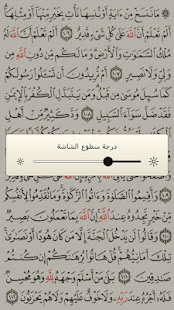 مَا نَنسَخْ مِنْ ءَايَةٍ أَوْ نُنسِهَا نَأْتِ بِخَيْرٍ مِّنْهَا أَوْ مِثْلِهَا
أَلَمْ تَعْلَمْ أَنَّ ٱللَّهَ عَلَىٰ كُلِّ شَىْءٍ قَدِيرٌ ١٠٦ أَلَمْ تَعْلَمْ أَنَّ ٱللَّهَ لَهُۥ
مُلْكُ ٱلسَّمَٰوَٰتِ وَٱلْأَرْضِ وَمَا لَكُم مِّن دُونِ ٱللَّهِ مِن
وَلِىٍّ وَلَا نَصِيرٍ ١٠٧ أَمْ تُرِيدُونَ أَن تَسْـَٔلُوا۟ رَسُولَكُمْ
كَمَا سُئِلَ مُوسَىٰ مِن قَبْلُ وَمَن يَتَبَدَّلِ ٱلْكُفْرَ بِٱلْإِيمَٰنِ
فَقَدْ ضَلَّ سَوَآءَ ٱلسَّبِيلِ ١٠٨ وَدَّ كَثِيرٌ مِّنْ أَهْلِ ٱلْكِتَٰبِ
درجة سطوع الشاشة
قَدِيرٌ ١٠٩ وَأَقِيمُوا۟ ٱلصَّلَوٰةَ وَءَاتُوا۟ ٱلزَّكَوٰةَ وَمَا تُقَدِّمُوا۟ لِأَنفُسِكُم
مِّنْ خَيْرٍ تَجِدُوهُ عِندَ ٱللَّهِ إِنَّ ٱللَّهَ بِمَا تَعْمَلُونَ بَصِيرٌ ١١٠
وَقَالُوا۟ لَن يَدْخُلَ ٱلْجَنَّةَ إِلَّا مَن كَانَ هُودًا أَوْ نَصَٰرَىٰ
تِلْكَ أَمَانِيُّهُمْ قُلْ هَاتُوا۟ بُرْهَٰنَكُمْ إِن كُنتُمْ
صَٰدِقِينَ ١١١ بَلَىٰ مَنْ أَسْلَمَ وَجْهَهُۥ لِلَّهِ وَهُوَ مُحْسِنٌ
فَلَهُۥٓ أَجْرُهُۥ عِندَ رَبِّهِۦ وَلَا خَوْفٌ عَلَيْهِمْ وَلَا هُمْ يَحْزَنُونَ ١١٢